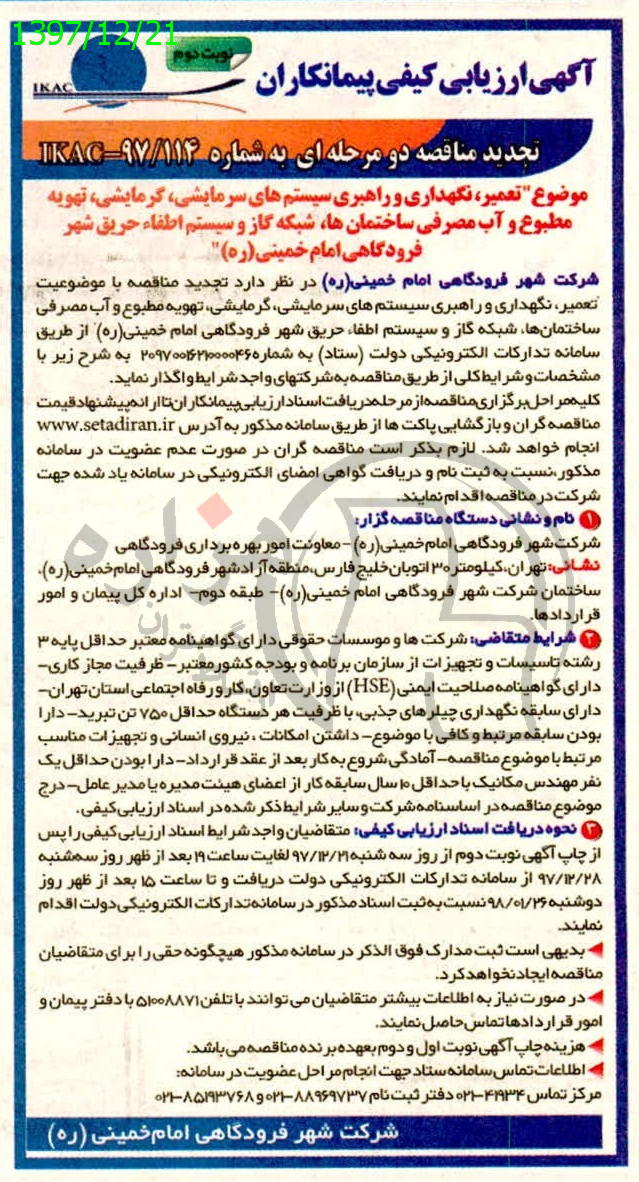 1397/12/21
نوبت دوم
IKAC
آگهی ارزیابی کیفی پیمانکاران
تجدید مناقصه دو مرحله ای به شماره IKAC-۹۷/۱۱۴
موضوع "تعمیر، نگهداری و راهبری سیستم های سرمایشی، گرمایشی، تهویه
مطبوع و آب مصرفی ساختمان ها، شبکه گاز و سیستم اطفاء حریق شهر
فرودگاهی امام خمینی(ره)"
شرکت شهر فرودگاهی امام خمینی(ره) در نظر دارد تجدید مناقصه با موضوعیت
تعمیر، نگهداری و راهبری سیستم های سرمایشی، گرمایشی، تهویه مطبوع و آب مصرفی
ساختمان‌ها، شبکه گاز و سیستم اطفاء حریق شهر فرودگاهی امام خمینی(ره) از طریق
سامانه تدارکات الکترونیکی دولت (ستاد) به شماره ۲۰۹۷۰۰۱۶۲۱۰۰۰۰۴۶ به شرح زیر با
مشخصات و شرایط کلی از طریق مناقصه به شرکتهای واجد شرایط واگذار نماید.
کلیه مراحل برگزاری مناقصه از مرحله دریافت اسناد ارزیابی پیمانکاران تا ارائه پیشنهاد قیمت
مناقصه گران و بازگشایی پاکت ها از طریق سامانه مذکور به آدرس www.setadiran.ir
انجام خواهد شد. لازم بذکر است مناقصه گران در صورت عدم عضویت در سامانه
مذکور،نسبت به ثبت نام و دریافت گواهی امضای الکترونیکی در سامانه یاد شده جهت
شرکت در مناقصه اقدام نمایند.
۱ نام و نشانی دستگاه مناقصه گزار:
شرکت شهر فرودگاهی امام خمینی(ره) - معاونت امور بهره برداری فرودگاهی
نشانی: تهران، کیلومتر ۳۰ اتوبان خلیج فارس، منطقه آزاد شهر فرودگاهی امام خمینی(ره)،
ساختمان شرکت شهر فرودگاهی امام خمینی(ره)- طبقه دوم- اداره کل پیمان و امور
قراردادها.
۲ شرایط متقاضی: شرکت ها و موسسات حقوقی دارای گواهینامه معتبر حداقل پایه ۳
رشته تاسیسات و تجهیزات از سازمان برنامه و بودجه کشور معتبر- ظرفیت مجاز کاری-
دارای گواهینامه صلاحیت ایمنی (HSE) از وزارت تعاون، کار و رفاه اجتماعی استان تهران-
دارای سابقه نگهداری چیلرهای جذبی، با ظرفیت هر دستگاه حداقل ۷۵۰ تن تبرید- دارا
بودن سابقه مرتبط و کافی با موضوع- داشتن امکانات ، نیروی انسانی و تجهیزات مناسب
مرتبط با موضوع مناقصه- آمادگی شروع به کار بعد از عقد قرارداد- دارا بودن حداقل یک
نفر مهندس مکانیک با حداقل ۱۰ سال سابقه کار از اعضای هیئت مدیره یا مدیر عامل- درج
موضوع مناقصه در اساسنامه شرکت و سایر شرایط ذکر شده در اسناد ارزیابی کیفی.
۳ نحوه دریافت اسناد ارزیابی کیفی: متقاضیان واجد شرایط اسناد ارزیابی کیفی را پس
از چاپ آگهی نوبت دوم از روز سه شنبه ۹۷/۱۲/۲۱ لغایت ساعت ۱۹ بعد از ظهر روز سه‌شنبه
۹۷/۱۲/۲۸ از سامانه تدارکات الکترونیکی دولت دریافت و تا ساعت ۱۵ بعد از ظهر روز
دوشنبه ۹۸/۰۱/۲۶ نسبت به ثبت اسناد مذکور در سامانه تدارکات الکترونیکی دولت اقدام
نمایند.
بدیهی است ثبت مدارک فوق الذکر در سامانه مذکور هیچگونه حقی را برای متقاضیان
مناقصه ایجاد نخواهد کرد.
در صورت نیاز به اطلاعات بیشتر متقاضیان می توانند با تلفن ۵۱۰۰۸۸۷۱ با دفتر پیمان و
امور قراردادها تماس حاصل نمایند.
هزینه چاپ آگهی نوبت اول و دوم بعهده برنده مناقصه می باشد.
اطلاعات تماس سامانه ستاد جهت انجام مراحل عضویت در سامانه:
مرکز تماس ۴۱۹۳۴-۰۲۱ دفتر ثبت نام ۸۸۹۶۹۷۳۷-۰۲۱ و ۸۵۱۹۳۷۶۸-۰۲۱
شرکت شهر فرودگاهی امام خمینی (ره)